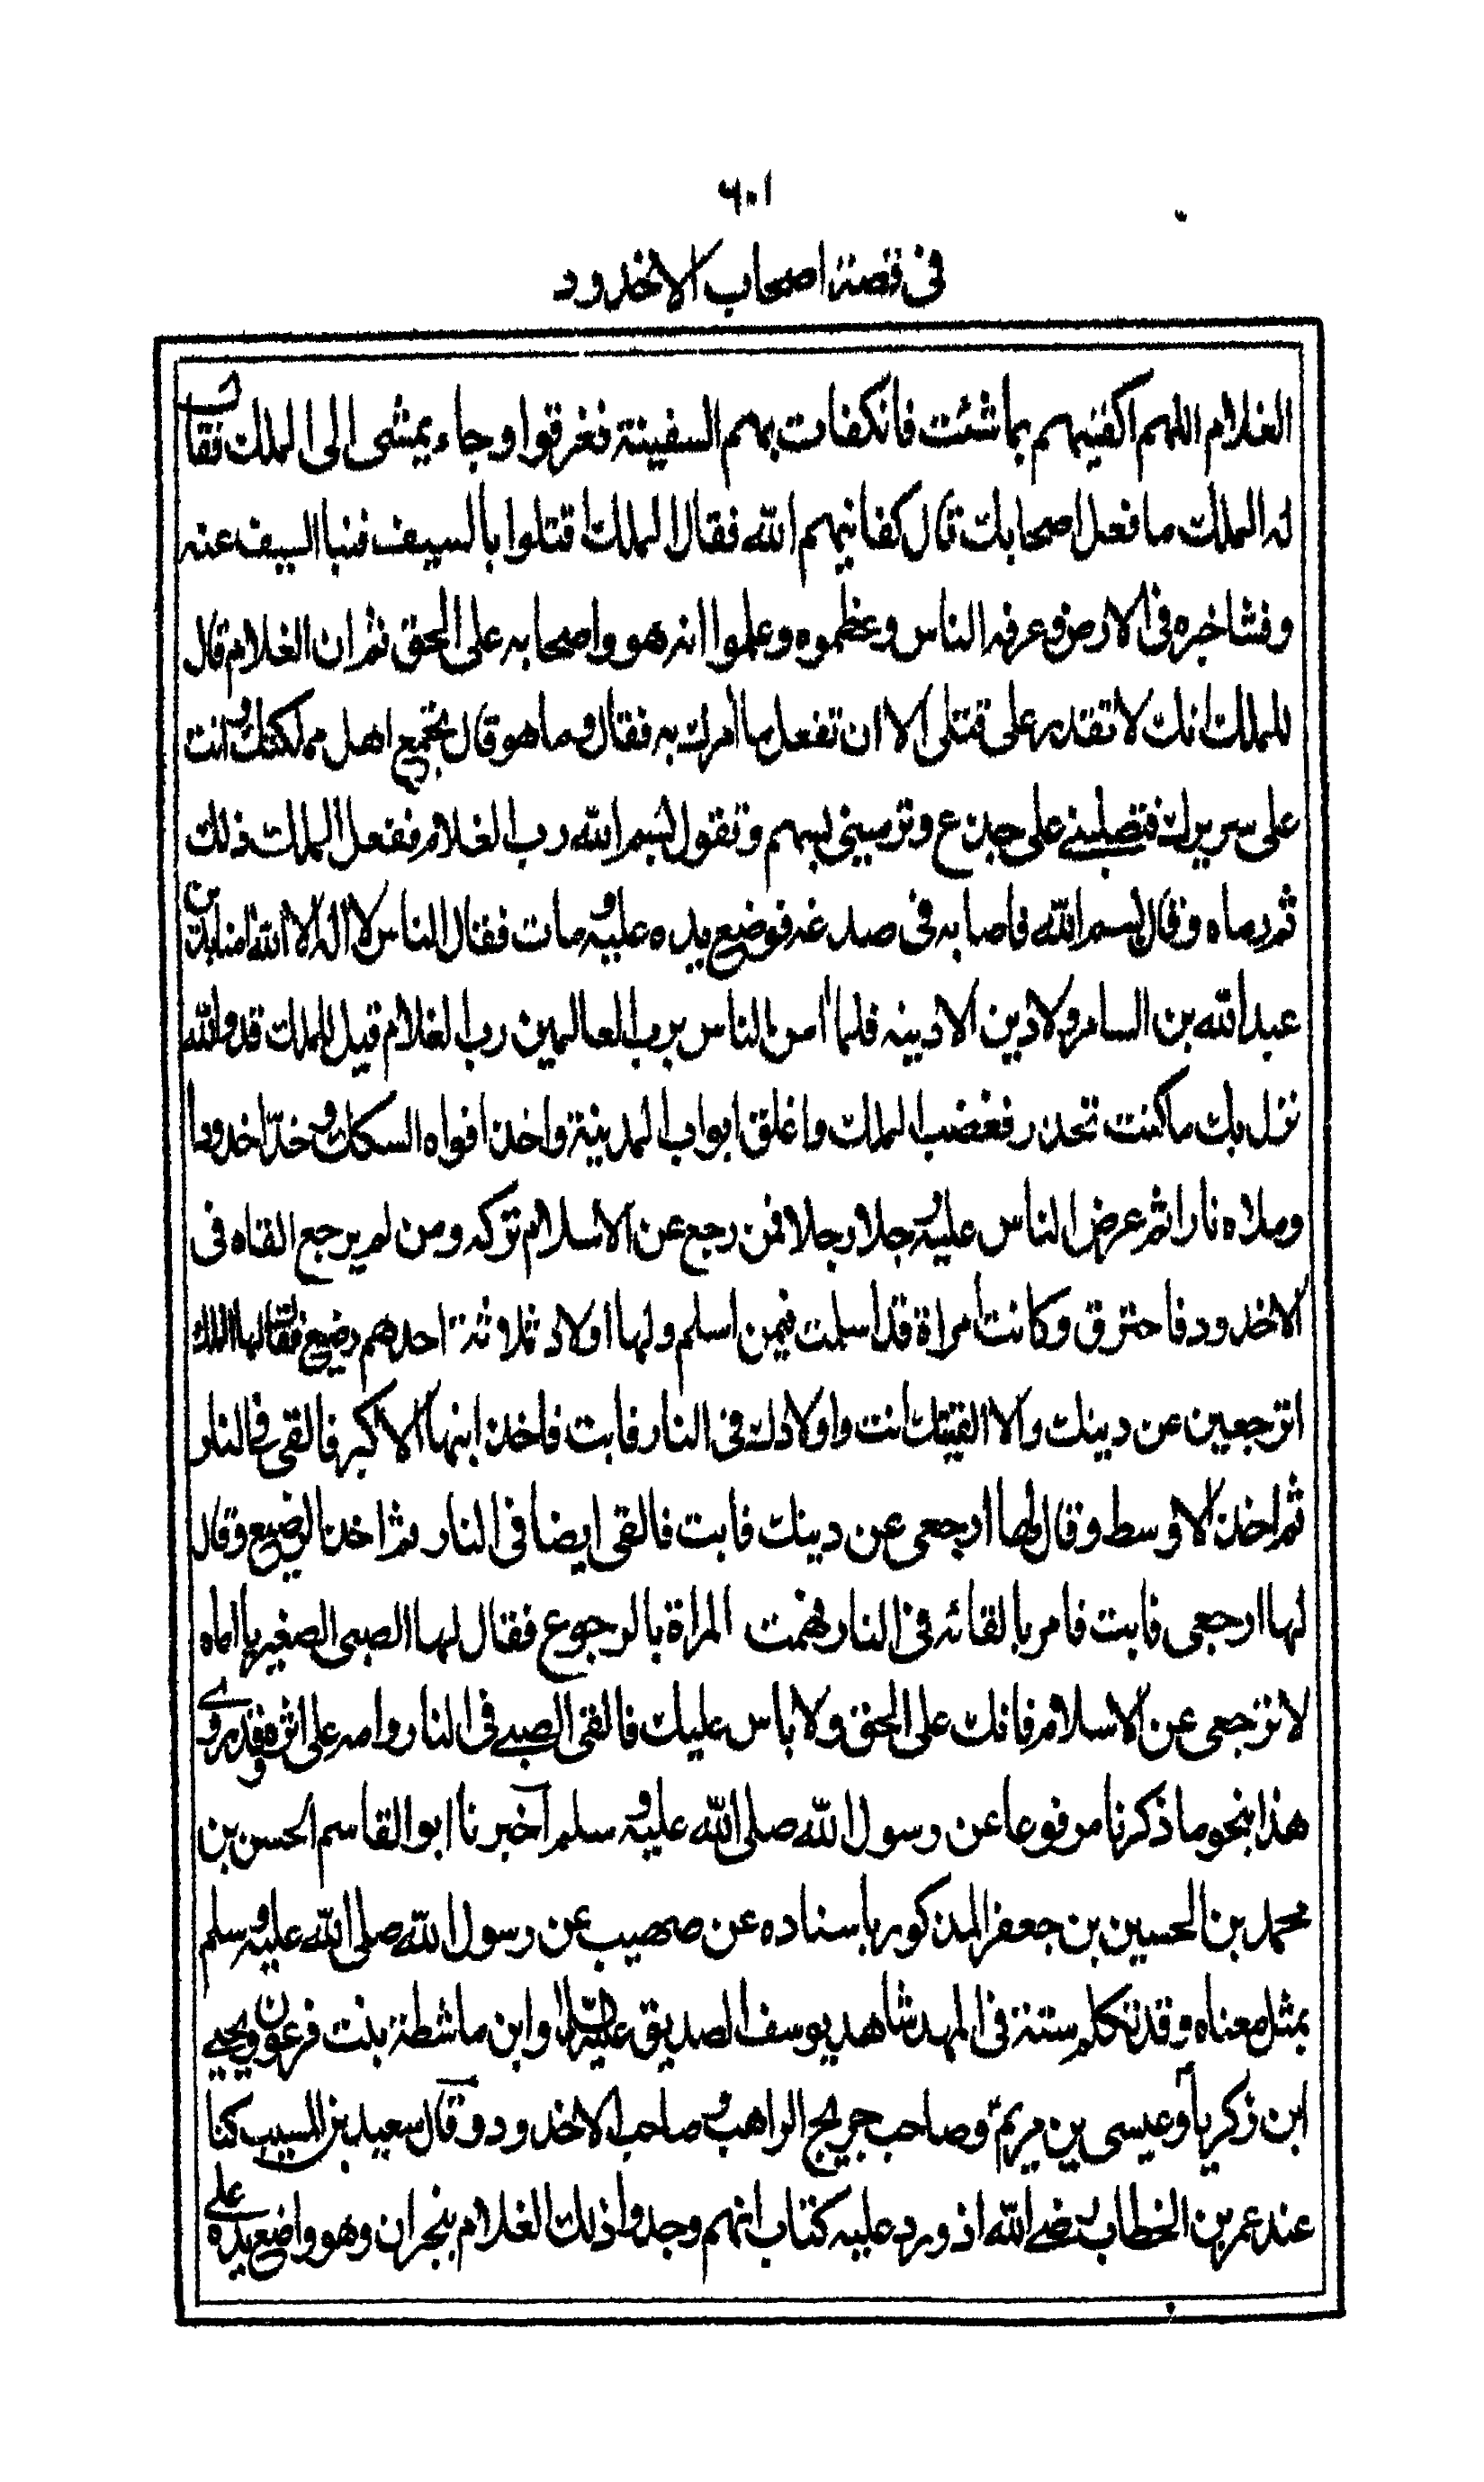 ٦٠١
في قصة اصحاب الاخدود
الغلام اللهم اكفنيهم بما شئت فانكفات بهم السفينة فغرقوا وجاء يمشى الى الملك فقال
له الملك ما فعل اصحابك قال كفانيهم الله فقال الملك اقتلوا بالسيف فنبا السيف عنه
وفشا خبره في الارض وعرفه الناس وعظموه وعلموا انه هو واصحابه على الحق ثم ان الغلام قال
للملك انك لا تقدر على قتلى الا ان تفعل ما امرك به فقال وما هو قال تجتمع اهل مملكتك وانت
على سريرك فتصلبنے على جذع وترمينى بسهم وتقول بسم الله رب الغلام ففعل الملك ذلك
ثم رماه وقال بسم الله فاصابه في صدغه فوضع يده عليه ومات فقال الناس لا اله الا الله امنا بدين
عبد الله بن السامر ولا دين الا دينه فلما امن الناس برب العالمين رب الغلام قيل للملك قد والله
نزل بك ما كنت تحذر فغضب الملك واغلق ابواب المدينة واخذ افواه السكك وخدّ اخدودا
وملاه نارا ثم عرض الناس عليه رجلا رجلا فمن رجع عن الاسلام تركه ومن لم يرجع القاه في
الاخدود فاحترق وكانت امراة قد اسلمت فيمن اسلم ولها اولاد ثلاثة احدهم رضيع فقال لها الملك
اترجعين عن دينك والا القيتك انت واولادك في النار فابت فاخذ ابنها الاكبر فالقى في النار
ثم اخذ الاوسط وقال لها ارجعى عن دينك فابت فالقى ايضا في النار ثم اخذ الرضيع وقال
لها ارجعى فابت فامر بالقائه في النار فهمت المراة بالرجوع فقال لها الصبى الصغير يا اماه
لا ترجعى عن الاسلام فانك على الحق ولا باس عليك فالقى الصبے في النار وامه على اثره وقد روے
هذا بنحو ما ذكرنا مرفوعا عن رسول الله صلى الله عليه وسلم اخبرنا ابو القاسم الحسن بن
محمد بن الحسين بن جعفر المذكور باسناده عن صهيب عن رسول الله صلى الله عليه وسلم
بمثل معناه وقد تكلم ستة في المهد شاهد يوسف الصديق عليه السلام وابن ماشطة بنت فرعون ويحيے
ابن زكريا وعيسى بن مريم وصاحب جريج الراهب وصاحب الاخدود وقال سعيد بن المسيب كنا
عند عمر بن الخطاب رضے الله اذ ورد عليه كتاب انهم وجدوا ذلك الغلام بنجران وهو واضع يده علے